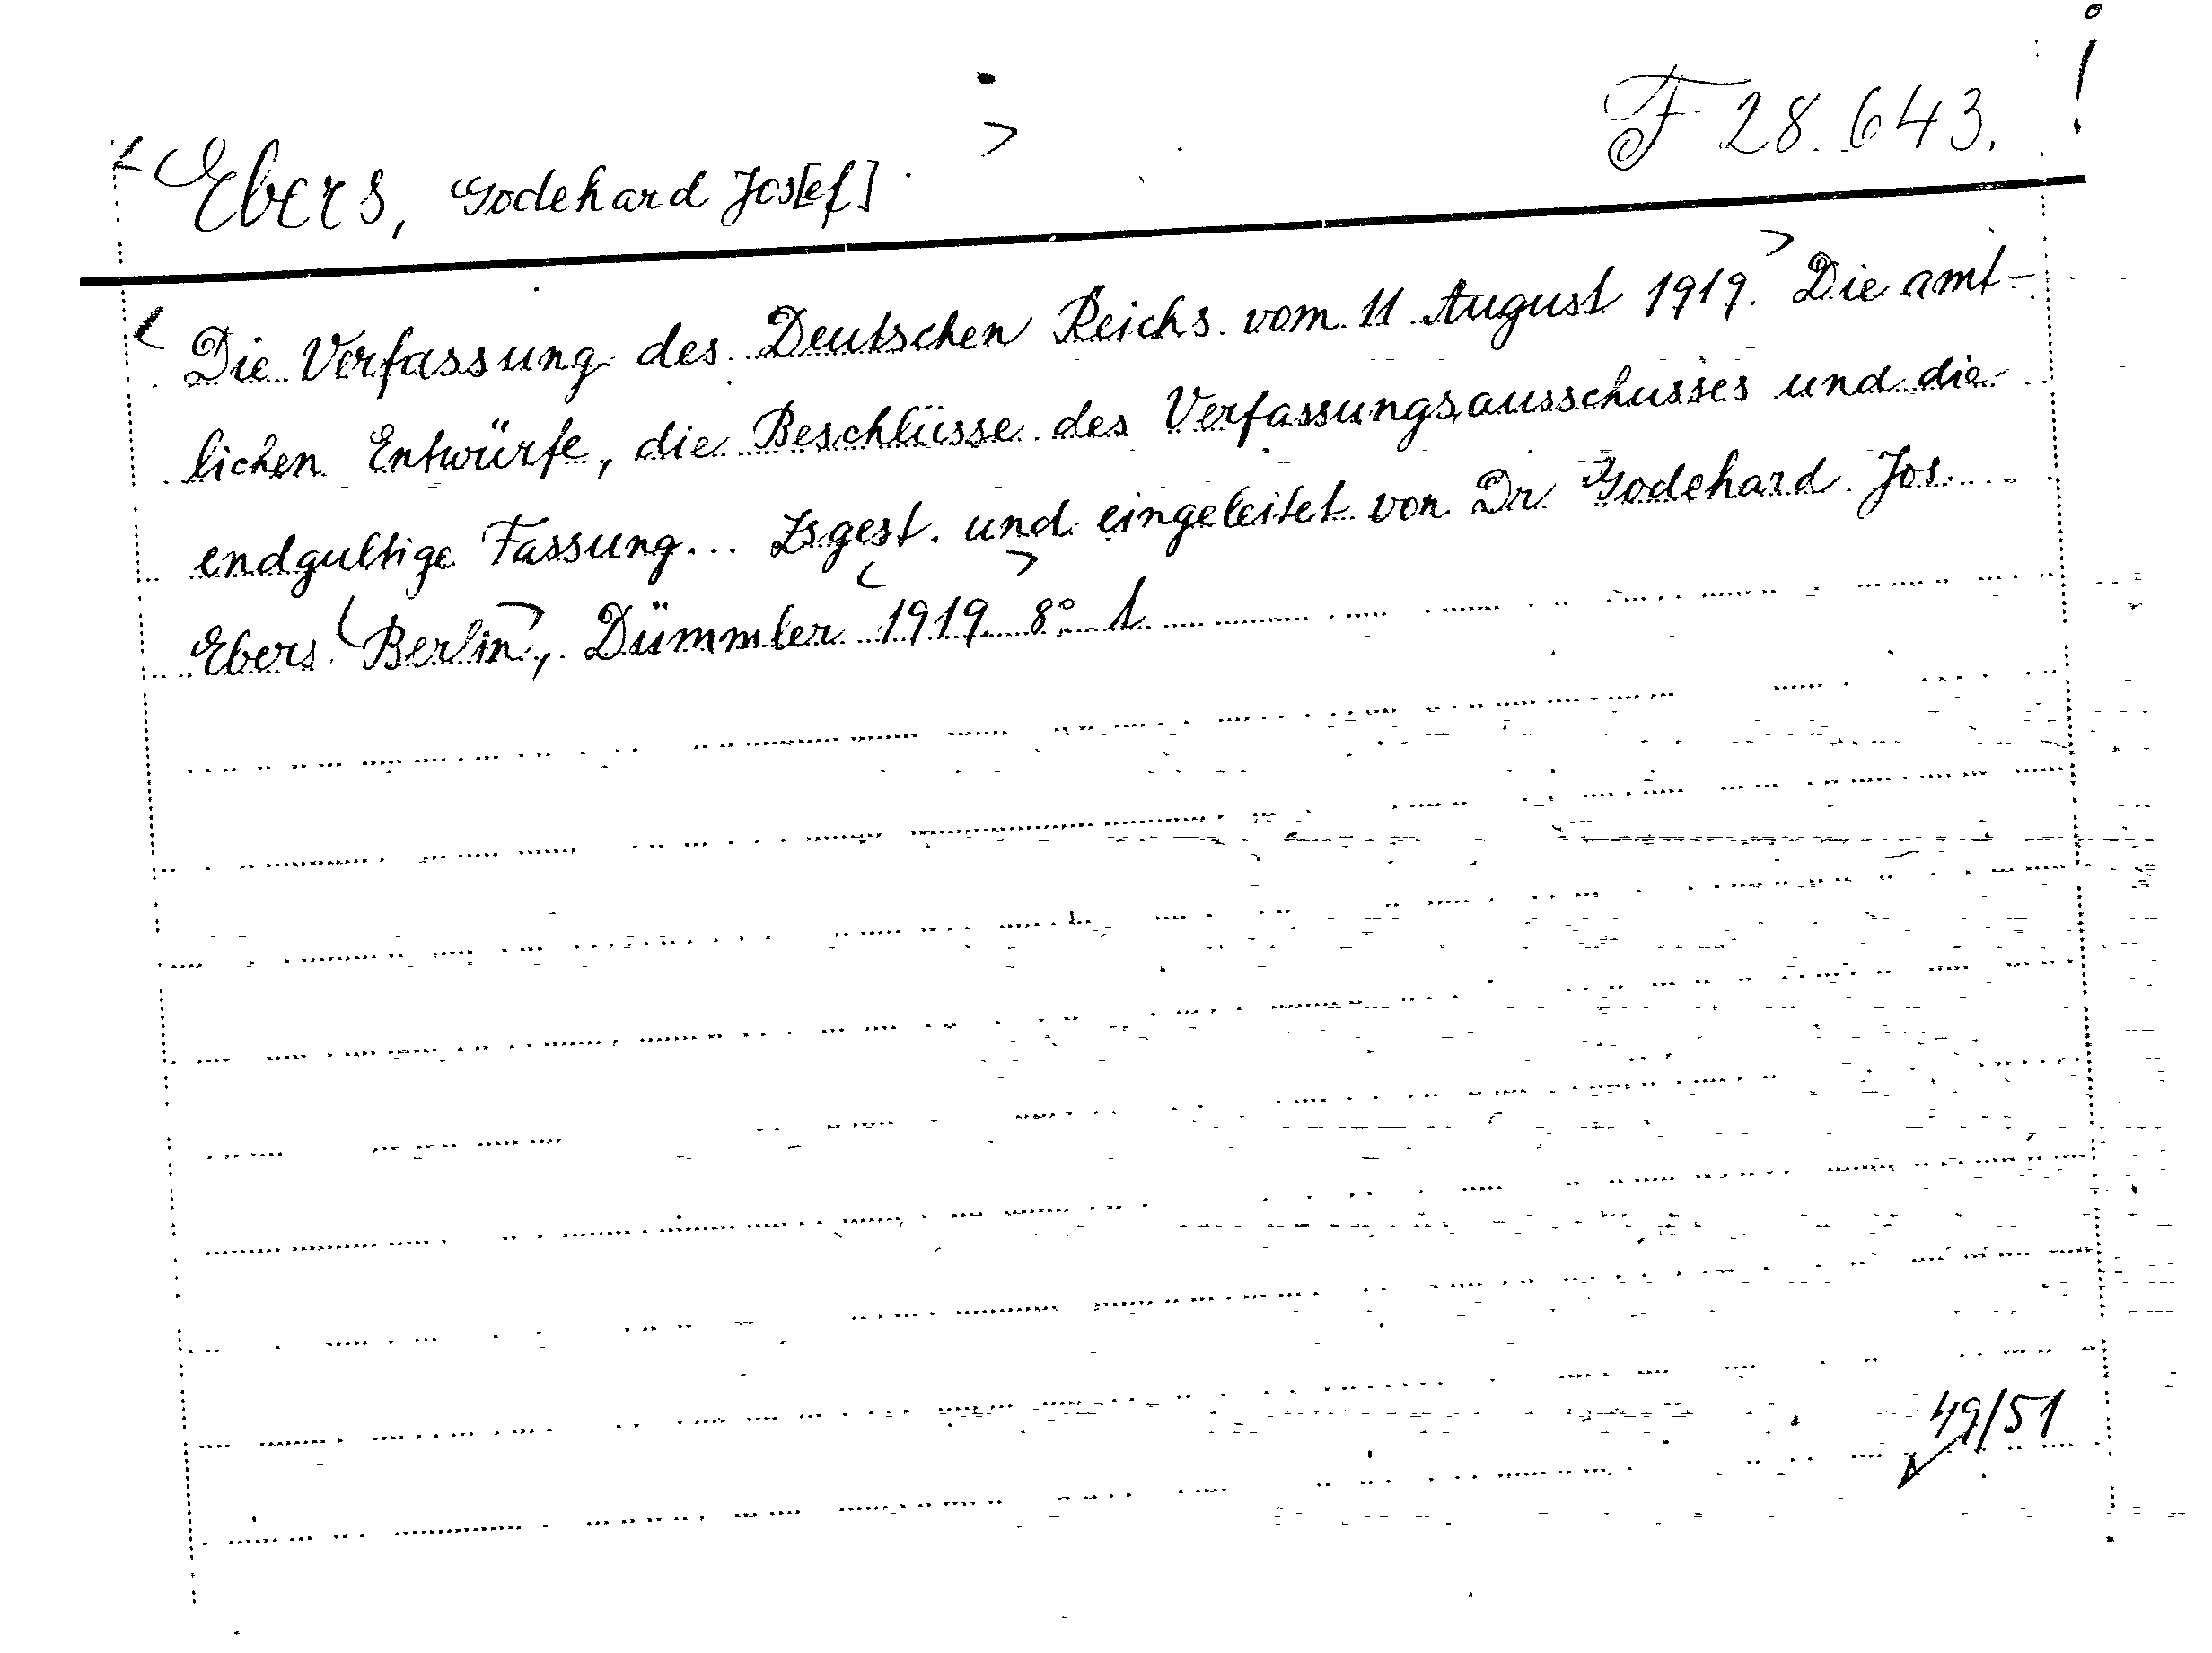 F 28.643. !
Ebers, Godehard Jos[ef]
Die Verfassung des Deutschen Reichs vom 11 August 1919. Die amt-
lichen Entwürfe, die Beschlüsse des Verfassungsausschusses und die
endgultige Fassung... Zsgest. und eingeleitet von Dr Godehard Jos.
Ebers. Berlin, Dümmler 1919 8° 1
49/51